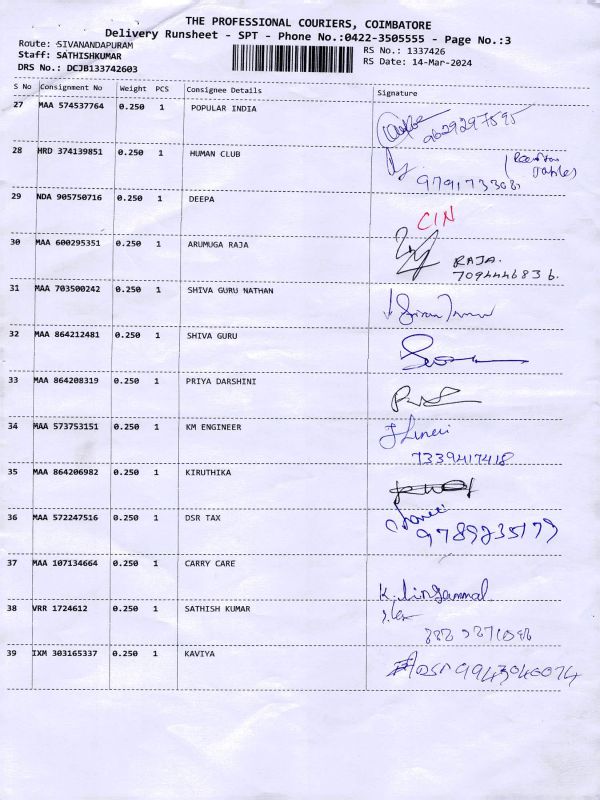 THE PROFESSIONAL COURIERS, COIMBATORE
Delivery Runsheet - SPT - Phone No.:0422-3505555 - Page No.:3
Route: SIVANANDAPURAM
Staff: SATHISHKUMAR
DRS No.: DCJB133742603
RS No.: 1337426
RS Date: 14-Mar-2024
S No Consignment No Weight PCS Consignee Details Signature
27 MAA 574537764 0.250 1 POPULAR INDIA
9629297595
28 HRD 374139851 0.250 1 HUMAN CLUB
29 NDA 905750716 0.250 1 DEEPA
CIN
30 MAA 600295351 0.250 1 ARUMUGA RAJA
RAJA.
7094446836.
31 MAA 703500242 0.250 1 SHIVA GURU NATHAN
32 MAA 864212481 0.250 1 SHIVA GURU
33 MAA 864208319 0.250 1 PRIYA DARSHINI
34 MAA 573753151 0.250 1 KM ENGINEER
7339417418
35 MAA 864206982 0.250 1 KIRUTHIKA
36 MAA 572247516 0.250 1 DSR TAX
9789235179
37 MAA 107134664 0.250 1 CARRY CARE
K. Lingammal
38 VRR 1724612 0.250 1 SATHISH KUMAR
39 IXM 303165337 0.250 1 KAVIYA
9943040074